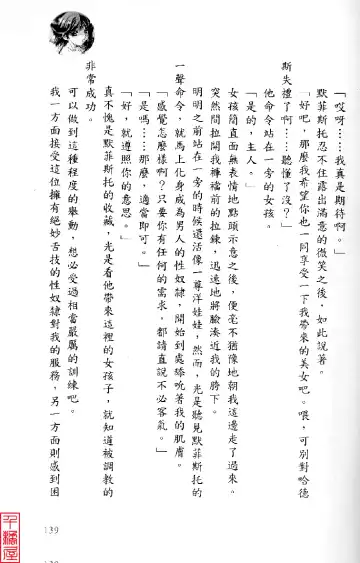 「哎呀⋯⋯我真是期待啊。」
默菲斯托忍不住露出滿意的微笑之後,如此說著。
「好吧,那麼我希望你也一同享受一下我帶來的美女吧。喂,可別對哈德
斯失禮了啊⋯⋯聽懂了沒?」
他命令站在一旁的女孩。
「是的,主人。」
女孩簡直面無表情地點頭示意之後,便毫不猶豫地朝我這邊走了過來。
突然間拉開我褲襠前的拉鍊,迅速地將臉湊近我的胯下。
明明之前站在一旁的時候還活像一尊洋娃娃,然而,光是聽見默菲斯托的
一聲命令,就馬上化身成為男人的性奴隸,開始到處舔吮著我的肌膚。
「感覺怎麼樣啊?只要你有任何的需求,都請直說不必客氣。」
「是嗎⋯⋯那麼,適當即可。」
「好,就遵照你的意思。」
真不愧是默菲斯托的收藏,光是看他帶來這裡的女孩子,就知道被調教的
非常成功。
可以做到這種程度的舉動,想必受過相當嚴厲的訓練吧。
我一方面接受這位擁有絕妙舌技的性奴隸對我的服務,另一方面則感到困
139
千繙屋